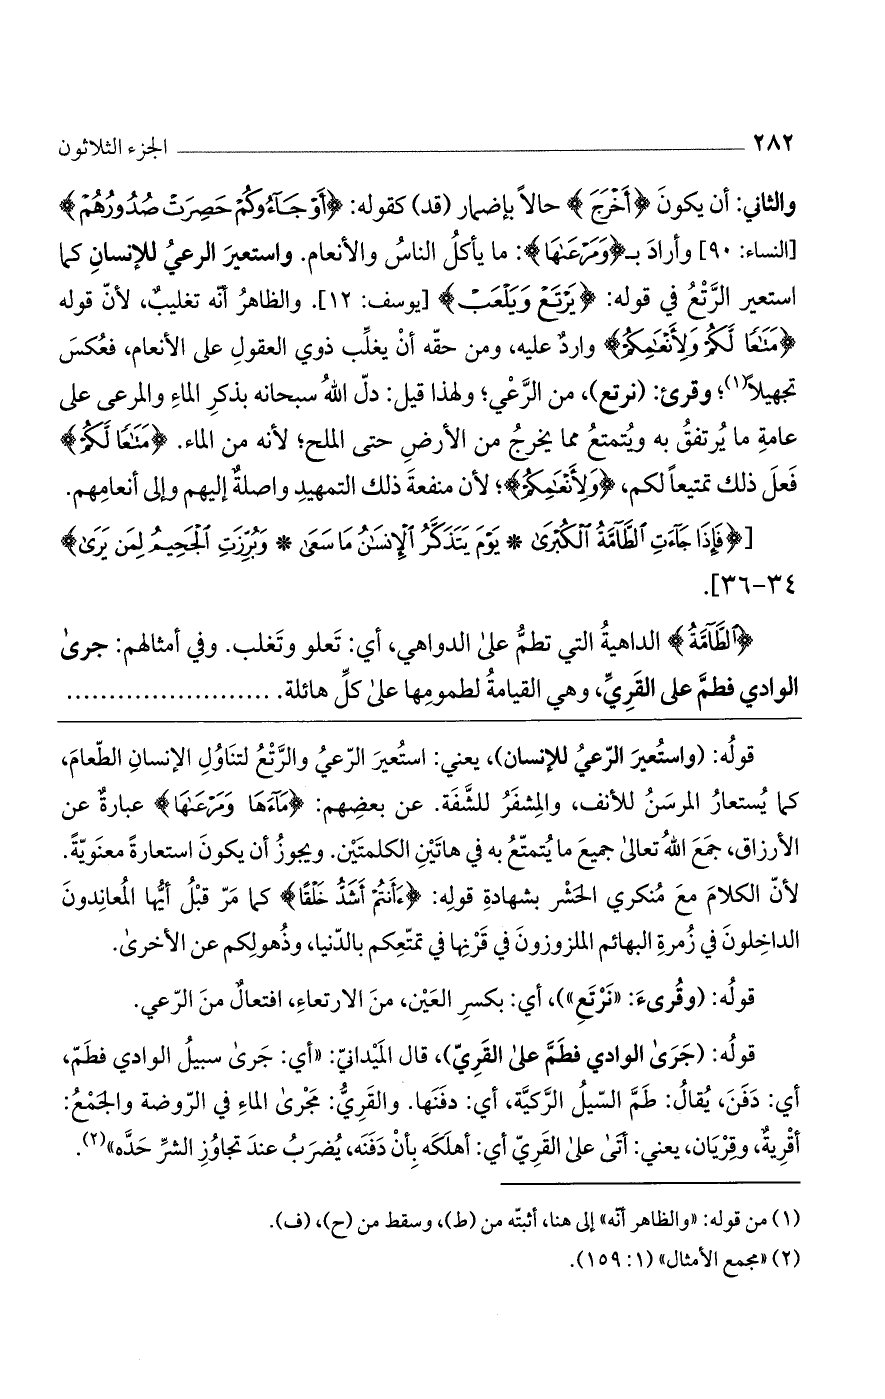 ٢٨٢ الجزء الثلاثون
والثاني: أن يكونَ ﴿أَخْرَجَ﴾ حالاً بإضمار (قد) كقوله: ﴿أَوْ جَآءُوكُمْ حَصِرَتْ صُدُورُهُمْ﴾
[النساء: ٩٠] وأرادَ بـ﴿وَمَرْعَىٰهَا﴾: ما يأكلُ الناسُ والأنعام. واستعيرَ الرعيُ للإنسانِ كما
استعير الرَّتْعُ في قوله: ﴿يَرْتَعْ وَيَلْعَبْ﴾ [يوسف: ١٢]. والظاهرُ أنّه تغليبٌ، لأنّ قوله
﴿مَتَٰعًا لَّكُمْ وَلِأَنْعَٰمِكُمْ﴾ واردٌ عليه، ومن حقّه أنْ يغلِّب ذوي العقولِ على الأنعام، فعُكسَ
تجهيلاً(١)؛ وقرئ: (نرتع)، من الرَّعْي؛ ولهذا قيل: دلّ اللهُ سبحانه بذكرِ الماءِ والمرعى على
عامةِ ما يُرتفقُ به ويُتمتعُ مما يخرجُ من الأرضِ حتى الملح؛ لأنه من الماء. ﴿مَتَٰعًا لَّكُمْ﴾
فَعلَ ذلك تمتيعاً لكم، ﴿وَلِأَنْعَٰمِكُمْ﴾؛ لأن منفعةَ ذلك التمهيدِ واصلةٌ إليهم وإلى أنعامِهم.
[﴿فَإِذَا جَآءَتِ ٱلطَّآمَّةُ ٱلْكُبْرَىٰ * يَوْمَ يَتَذَكَّرُ ٱلْإِنسَٰنُ مَا سَعَىٰ * وَبُرِّزَتِ ٱلْجَحِيمُ لِمَن يَرَىٰ﴾
٣٤-٣٦].
﴿ٱلطَّآمَّةُ﴾ الداهيةُ التي تطمُّ علىٰ الدواهي، أي: تَعلو وتَغلب. وفي أمثالهم: جرىٰ
الوادي فطمَّ على القَرِيِّ، وهي القيامةُ لطمومِها علىٰ كلِّ هائلة. ........................
قولُه: (واستُعيرَ الرّعيُ للإنسان)، يعني: استُعيرَ الرّعيُ والرَّتْعُ لتنَاوُلِ الإنسانِ الطّعامَ،
كما يُستعارُ المرسَنُ للأنف، والمِشفَرُ للشَّفَة. عن بعضِهم: ﴿مَآءَهَا وَمَرْعَىٰهَا﴾ عبارةٌ عن
الأرزاق، جمَعَ اللهُ تعالىٰ جميعَ ما يُتمتّعُ به في هاتَيْنِ الكلمتَيْن. ويجوزُ أن يكونَ استعارةً معنَويّةً.
لأنّ الكلامَ معَ مُنكري الحَشْر بشهادةِ قولِه: ﴿ءَأَنتُمْ أَشَدُّ خَلْقًا﴾ كما مَرّ قبْلُ أيُّها المُعانِدونَ
الداخِلونَ في زُمرةِ البهائم الملزوزونَ في قَرْنِها في تمتّعِكم بالدّنيا، وذُهولِكم عن الأخرىٰ.
قولُه: (وقُرىءَ: «نَرْتَعِ»)، أي: بكسرِ العَيْن، منَ الارتعاءِ، افتعالٌ منَ الرّعي.
قولُه: (جَرَىٰ الوادي فطَمَّ علىٰ القَرِيّ)، قال المَيْدانيّ: «أي: جَرىٰ سبيلُ الوادي فطَمّ،
أي: دَفَنَ، يُقالُ: طَمَّ السّيلُ الرَّكيَّة، أي: دفَنَها. والقَرِيُّ: مَجْرىٰ الماءِ في الرّوضة والجَمْعُ:
أقْرِيةٌ، وقِرْيَان، يعني: أتَىٰ علىٰ القَرِيّ أي: أهلَكَه بِأنْ دَفَنَه، يُضرَبُ عندَ تجاوُزِ الشرِّ حَدَّه»(٢).
(١) من قوله: «والظاهر أنّه» إلى هنا، أثبتّه من (ط)، وسقط من (ح)، (ف).
(٢) «مجمع الأمثال» (١: ١٥٩).